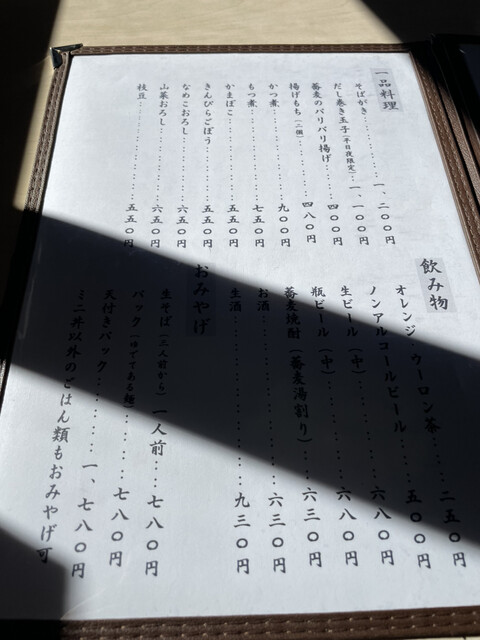 一品料理
そばがき………一、二〇〇円
だし巻き玉子（平日夜限定）…一、一〇〇円
蕎麦のパリパリ揚げ………四〇〇円
揚げもち（二個）………四八〇円
かつ煮………九〇〇円
もつ煮………七五〇円
かまぼこ………五五〇円
きんぴらごぼう………五五〇円
なめこおろし………六五〇円
山菜おろし………六五〇円
枝豆………五五〇円
飲み物
オレンジ・ウーロン茶………二五〇円
ノンアルコールビール………五〇〇円
生ビール（中）………六八〇円
瓶ビール（中）………六八〇円
蕎麦焼酎（蕎麦湯割り）………六三〇円
お酒………六三〇円
生酒………九三〇円
おみやげ
生そば（二人前から）一人前………七八〇円
パック（ゆでてある麺）………七八〇円
天付きパック………一、七八〇円
ミニ丼以外のごはん類もおみやげ可